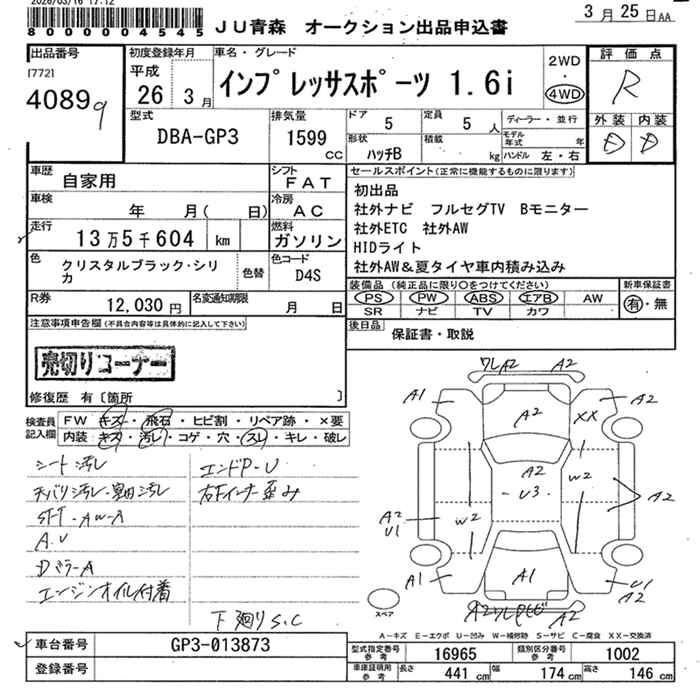 2026/03/16 17:12
800000004545
JU青森 オークション出品申込書
3月25日AA
出品番号
[772]
4089
9
初度登録年月
平成
26 3月
車名・グレード
インプレッサスポーツ 1.6i
2WD
・
4WD
評価点
R
外装 内装
D D
型式
DBA-GP3
排気量
1599
CC
ドア
5
定員
5 人
形状
ハッチB
積載
kg
ディーラー・並行
モデル年式 年
ハンドル 左・右
車歴
自家用
シフト
FAT
車検
年 月( 日)
冷房
AC
走行
13万5千604 km
燃料
ガソリン
色
クリスタルブラック・シリカ
色替
色コード
D4S
セールスポイント(正常に機能するものに限ります)
初出品
社外ナビ フルセグTV Bモニター
社外ETC 社外AW
HIDライト
社外AW&夏タイヤ車内積み込み
R券
12,030 円
名変通知期限
月 日
装備品 (純正品に限り○をつけてください)
PS PW ABS エアB AW
SR ナビ TV カワ
新車保証書
有・無
後日品
保証書・取説
注意事項申告欄(不具合内容等は具体的に記入して下さい)
売切りコーナー
修復歴 有〔箇所 〕
検査員記入欄
FW キズ・飛石・ヒビ割・リペア跡・×要
内装 キズ・汚レ・コゲ・穴・スレ・キレ・破レ
シート汚レ
天バリ汚レ・室内汚レ
ST-T・AW-A
A.U
DミラーA
エンジンオイル付着
エンドP-U
右Fインナー歪み
下廻りS.C
ワレA2 A2
A1 A2 XX A2
A2
U3
W2 W2
A2
A2
U1
A1 A1 U1
A2
A2
スペア
A-キズ E-エクボ U-凹み W-補修跡 S-サビ C-腐食 XX-交換済
車台番号
GP3-013873
登録番号
型式指定番号
参考
16965
類別区分番号
参考
1002
車庫証明用
参考
長さ 441 cm 幅 174 cm 高さ 146 cm